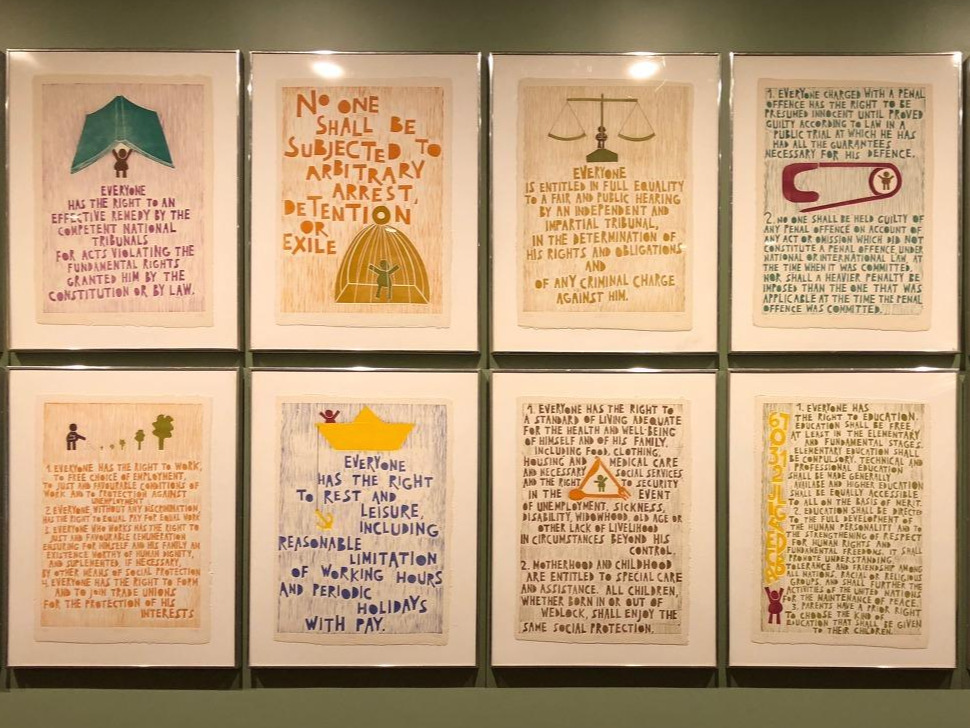 EVERYONE
HAS THE RIGHT TO AN
EFFECTIVE REMEDY BY THE
COMPETENT NATIONAL
TRIBUNALS
FOR ACTS VIOLATING THE
FUNDAMENTAL RIGHTS
GRANTED HIM BY THE
CONSTITUTION OR BY LAW.
NO ONE
SHALL BE
SUBJECTED TO
ARBITRARY
ARREST,
DETENTION
OR
EXILE
EVERYONE
IS ENTITLED IN FULL EQUALITY
TO A FAIR AND PUBLIC HEARING
BY AN INDEPENDENT AND
IMPARTIAL TRIBUNAL,
IN THE DETERMINATION OF
HIS RIGHTS AND OBLIGATIONS
AND
OF ANY CRIMINAL CHARGE
AGAINST HIM.
1. EVERYONE CHARGED WITH A PENAL
OFFENCE HAS THE RIGHT TO BE
PRESUMED INNOCENT UNTIL PROVED
GUILTY ACCORDING TO LAW IN A
PUBLIC TRIAL AT WHICH HE HAS
HAD ALL THE GUARANTEES
NECESSARY FOR HIS DEFENCE.
2. NO ONE SHALL BE HELD GUILTY OF
ANY PENAL OFFENCE ON ACCOUNT OF
ANY ACT OR OMISSION WHICH DID NOT
CONSTITUTE A PENAL OFFENCE UNDER
NATIONAL OR INTERNATIONAL LAW, AT
THE TIME WHEN IT WAS COMMITTED.
NOR SHALL A HEAVIER PENALTY BE
IMPOSED THAN THE ONE THAT WAS
APPLICABLE AT THE TIME THE PENAL
OFFENCE WAS COMMITTED.
1. EVERYONE HAS THE RIGHT TO WORK,
TO FREE CHOICE OF EMPLOYMENT,
TO JUST AND FAVOURABLE CONDITIONS OF
WORK AND TO PROTECTION AGAINST
UNEMPLOYMENT.
2. EVERYONE WITHOUT ANY DISCRIMINATION,
HAS THE RIGHT TO EQUAL PAY FOR EQUAL WORK
3. EVERYONE WHO WORKS HAS THE RIGHT TO
JUST AND FAVOURABLE REMUNERATION
ENSURING FOR HIMSELF AND HIS FAMILY AN
EXISTENCE WORTHY OF HUMAN DIGNITY,
AND SUPLEMENTED, IF NECESSARY,
BY OTHER MEANS OF SOCIAL PROTECTION
4. EVERYONE HAS THE RIGHT TO FORM
AND TO JOIN TRADE UNIONS
FOR THE PROTECTION OF HIS
INTERESTS
EVERYONE
HAS THE RIGHT
TO REST AND
LEISURE,
INCLUDING
REASONABLE
LIMITATION
OF WORKING HOURS
AND PERIODIC
HOLIDAYS
WITH PAY.
1. EVERYONE HAS THE RIGHT TO
A STANDARD OF LIVING ADEQUATE
FOR THE HEALTH AND WELL-BEING
OF HIMSELF AND OF HIS FAMILY,
INCLUDING FOOD, CLOTHING,
HOUSING AND MEDICAL CARE
AND NECESSARY SOCIAL SERVICES
AND THE RIGHT TO SECURITY
IN THE EVENT
OF UNEMPLOYMENT, SICKNESS,
DISABILITY, WIDOWHOOD, OLD AGE OR
OTHER LACK OF LIVELIHOOD
IN CIRCUMSTANCES BEYOND HIS
CONTROL.
2. MOTHERHOOD AND CHILDHOOD
ARE ENTITLED TO SPECIAL CARE
AND ASSISTANCE. ALL CHILDREN,
WHETHER BORN IN OR OUT OF
WEDLOCK, SHALL ENJOY THE
SAME SOCIAL PROTECTION.
1. EVERYONE HAS
THE RIGHT TO EDUCATION.
EDUCATION SHALL BE FREE,
AT LEAST IN THE ELEMENTARY
AND FUNDAMENTAL STAGES.
ELEMENTARY EDUCATION SHALL
BE COMPULSORY. TECHNICAL AND
PROFESSIONAL EDUCATION
SHALL BE MADE GENERALLY
AND HIGHER EDUCATION
SHALL BE EQUALLY ACCESSIBLE
TO ALL ON THE BASIS OF MERIT.
2. EDUCATION SHALL BE DIRECTED
TO THE FULL DEVELOPMENT OF
THE HUMAN PERSONALITY AND TO
THE STRENGTHENING OF RESPECT
FOR HUMAN RIGHTS AND
FUNDAMENTAL FREEDOMS. IT SHALL
PROMOTE UNDERSTANDING,
TOLERANCE AND FRIENDSHIP AMONG
ALL NATIONS, RACIAL OR RELIGIOUS
GROUPS, AND SHALL FURTHER THE
ACTIVITIES OF THE UNITED NATIONS
FOR THE MAINTENANCE OF PEACE.
3. PARENTS HAVE A PRIOR RIGHT
TO CHOOSE THE KIND OF
EDUCATION THAT SHALL BE GIVEN
TO THEIR CHILDREN.